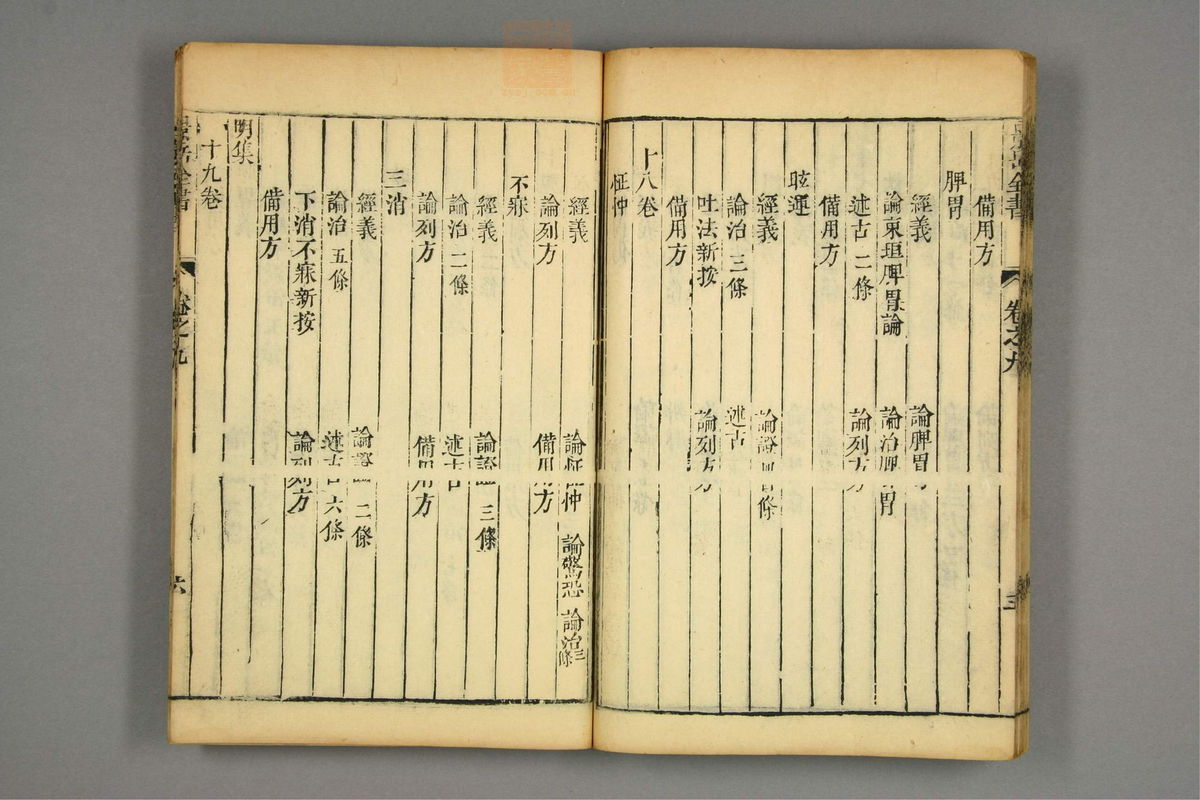 備用方
脾胃
經義 論脾胃
論東垣脾胃論 論治脾胃
述古 二條 論列方
備用方
眩運
經義 論證 條
論治 三條 述古
吐法新按 論列方
備用方
十八卷
怔忡
經義 論怔忡 論驚恐 論治 三條
論列方 備用方
不寐
經義 論證 三條
論治 二條 述古
論列方 備用方
三消
經義 論證 二條
論治 五條 述古 六條
下消不寐新按 論列方
備用方
明集
十九卷
景岳全書 卷之九 六
岳全書 卷之九